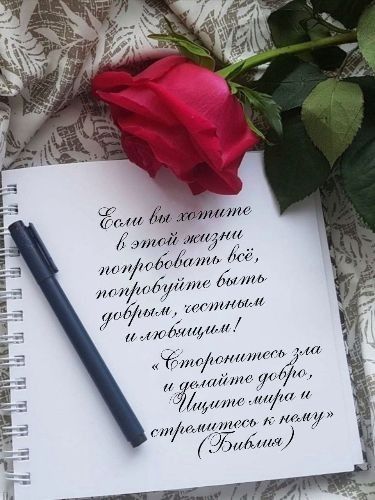 Если вы хотите
в этой жизни
попробовать всё,
попробуйте быть
добрым, честным
и любящим!
«Сторонитесь зла
и делайте добро,
Ищите мира и
стремитесь к нему»
(Библия)